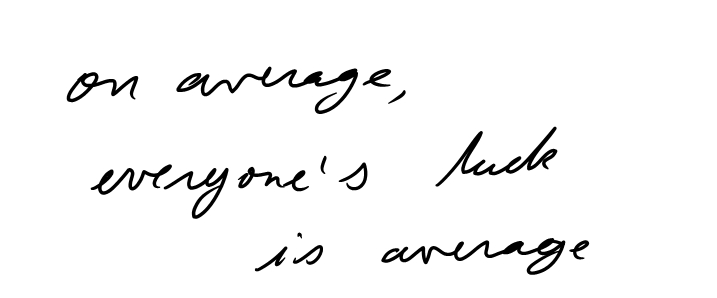 on average,
everyone's luck
is average